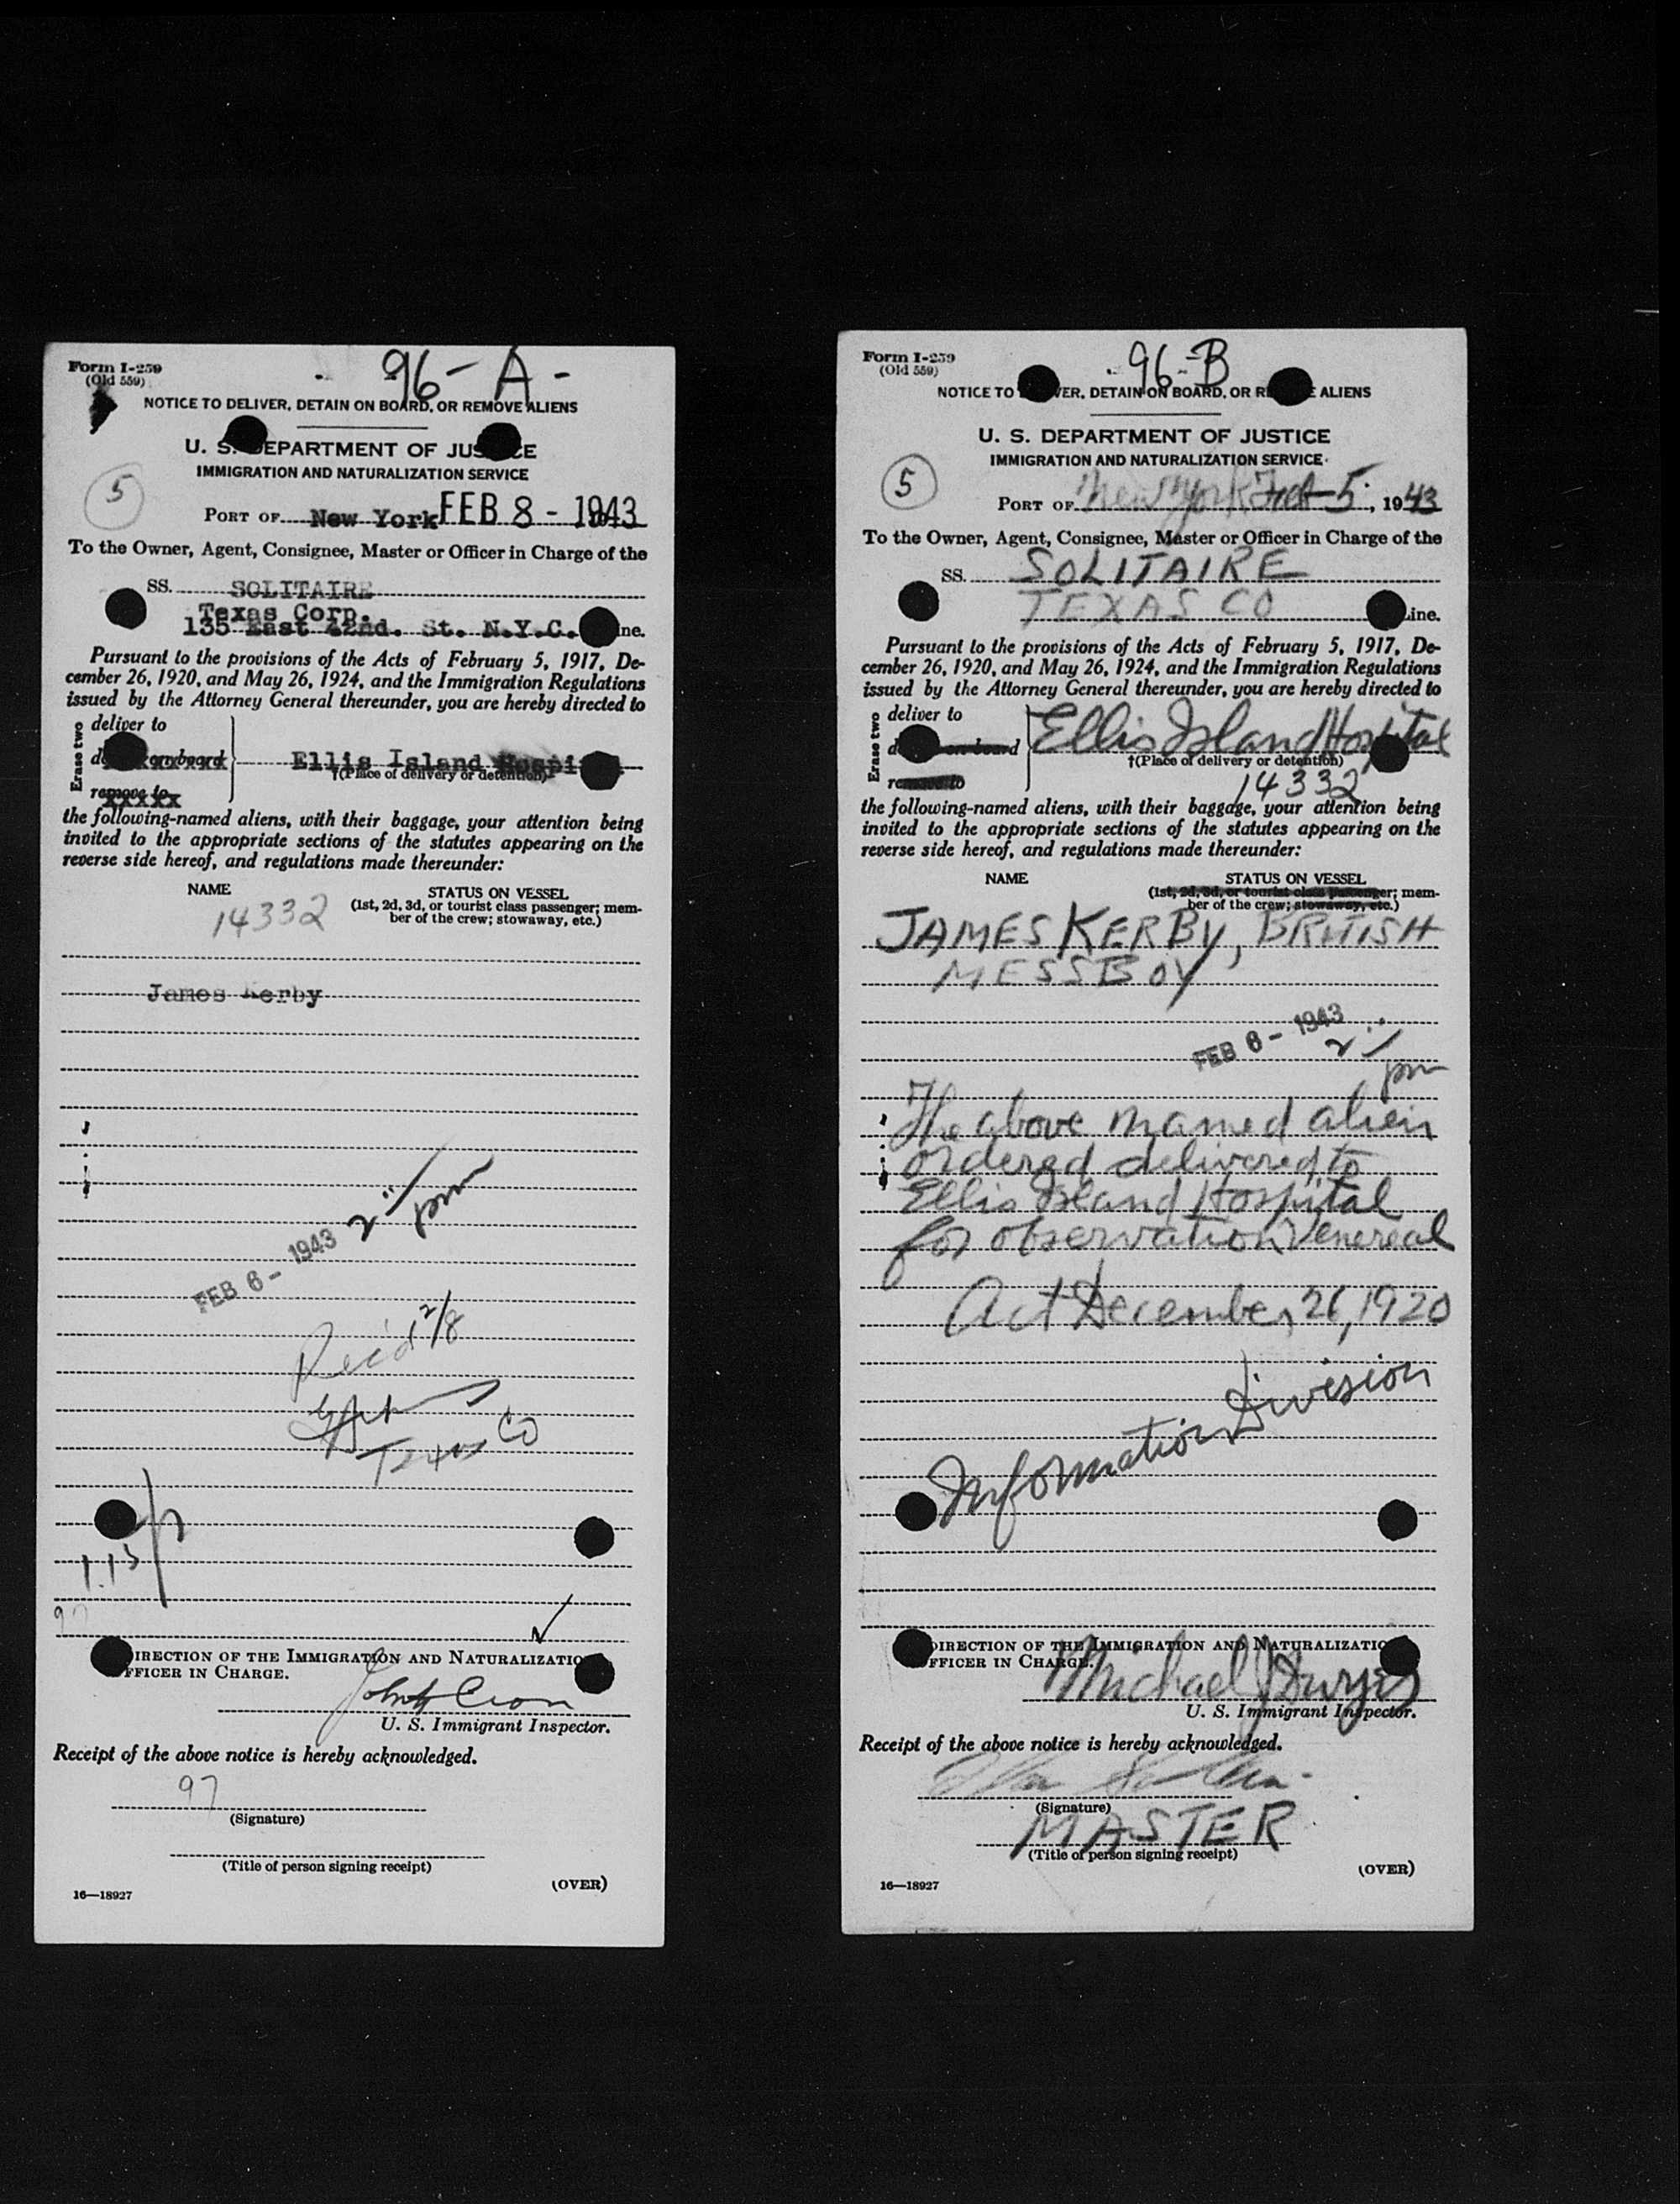 Form I-259
(Old 559)
96-A-
NOTICE TO DELIVER, DETAIN ON BOARD, OR REMOVE ALIENS
U. S. DEPARTMENT OF JUSTICE
IMMIGRATION AND NATURALIZATION SERVICE
5
PORT OF New York FEB 8 - 1943
To the Owner, Agent, Consignee, Master or Officer in Charge of the
SS. SOLITAIRE
Texas Corp.
135 East 42nd. St. N.Y.C. ine.
Pursuant to the provisions of the Acts of February 5, 1917, De-
cember 26, 1920, and May 26, 1924, and the Immigration Regulations
issued by the Attorney General thereunder, you are hereby directed to
Erase two
deliver to
on board
Ellis Island Hospi
†(Place of delivery or detention)
remove to
the following-named aliens, with their baggage, your attention being
invited to the appropriate sections of the statutes appearing on the
reverse side hereof, and regulations made thereunder:
NAME
STATUS ON VESSEL
14332
(1st, 2d, 3d, or tourist class passenger; mem-
ber of the crew; stowaway, etc.)
James Kerby
FEB 6 - 1943 2 pm
Rec'd 2/8
Texas Co
1.15
97
✓
DIRECTION OF THE IMMIGRATION AND NATURALIZATIO
FFICER IN CHARGE.
U. S. Immigrant Inspector.
Receipt of the above notice is hereby acknowledged.
97
(Signature)
(Title of person signing receipt)
(OVER)
16—18927
Form I-259
(Old 559)
96-B
NOTICE TO VER, DETAIN ON BOARD, OR R E ALIENS
U. S. DEPARTMENT OF JUSTICE
IMMIGRATION AND NATURALIZATION SERVICE
5
PORT OF New York Feb 5, 1943
To the Owner, Agent, Consignee, Master or Officer in Charge of the
SS. SOLITAIRE
TEXAS CO
Line.
Pursuant to the provisions of the Acts of February 5, 1917, De-
cember 26, 1920, and May 26, 1924, and the Immigration Regulations
issued by the Attorney General thereunder, you are hereby directed to
Erase two
deliver to
on board
Ellis Island Hospital
†(Place of delivery or detention)
remove to
14332
the following-named aliens, with their baggage, your attention being
invited to the appropriate sections of the statutes appearing on the
reverse side hereof, and regulations made thereunder:
NAME
STATUS ON VESSEL
(1st, 2d, 3d, or tourist class passenger; mem-
ber of the crew; stowaway, etc.)
JAMES KERBY, BRITISH
MESSBOY
FEB 6 - 1943
2 pm
The above named alien
ordered delivered to
Ellis Island Hospital
for observation Venereal
Act December 26, 1920
Information Division
DIRECTION OF THE IMMIGRATION AND NATURALIZATIO
FFICER IN CHARGE.
Michael J Dwyer
U. S. Immigrant Inspector.
Receipt of the above notice is hereby acknowledged.
(Signature)
MASTER
(Title of person signing receipt)
(OVER)
16—18927